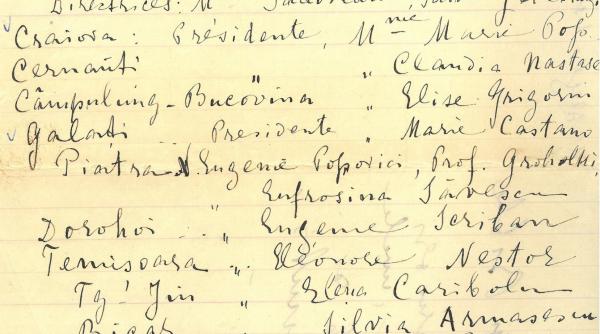 Directrices: M
Craiova: Présidente, Mme Marie Pop.
Cernauti " Claudia Nastase
Câmpulung-Bucovina " Elise Grigoriu
Galați .. Presidente " Marie Castano
Piatra N. Eugenie Popovici, Prof.
" Eufrosina Săvescu
Dorohoi .. " Eugenie Scriban
Temisoara .. " Eléonore Nestor
Tg. Jiu " Elena
" Silvia Armasescu